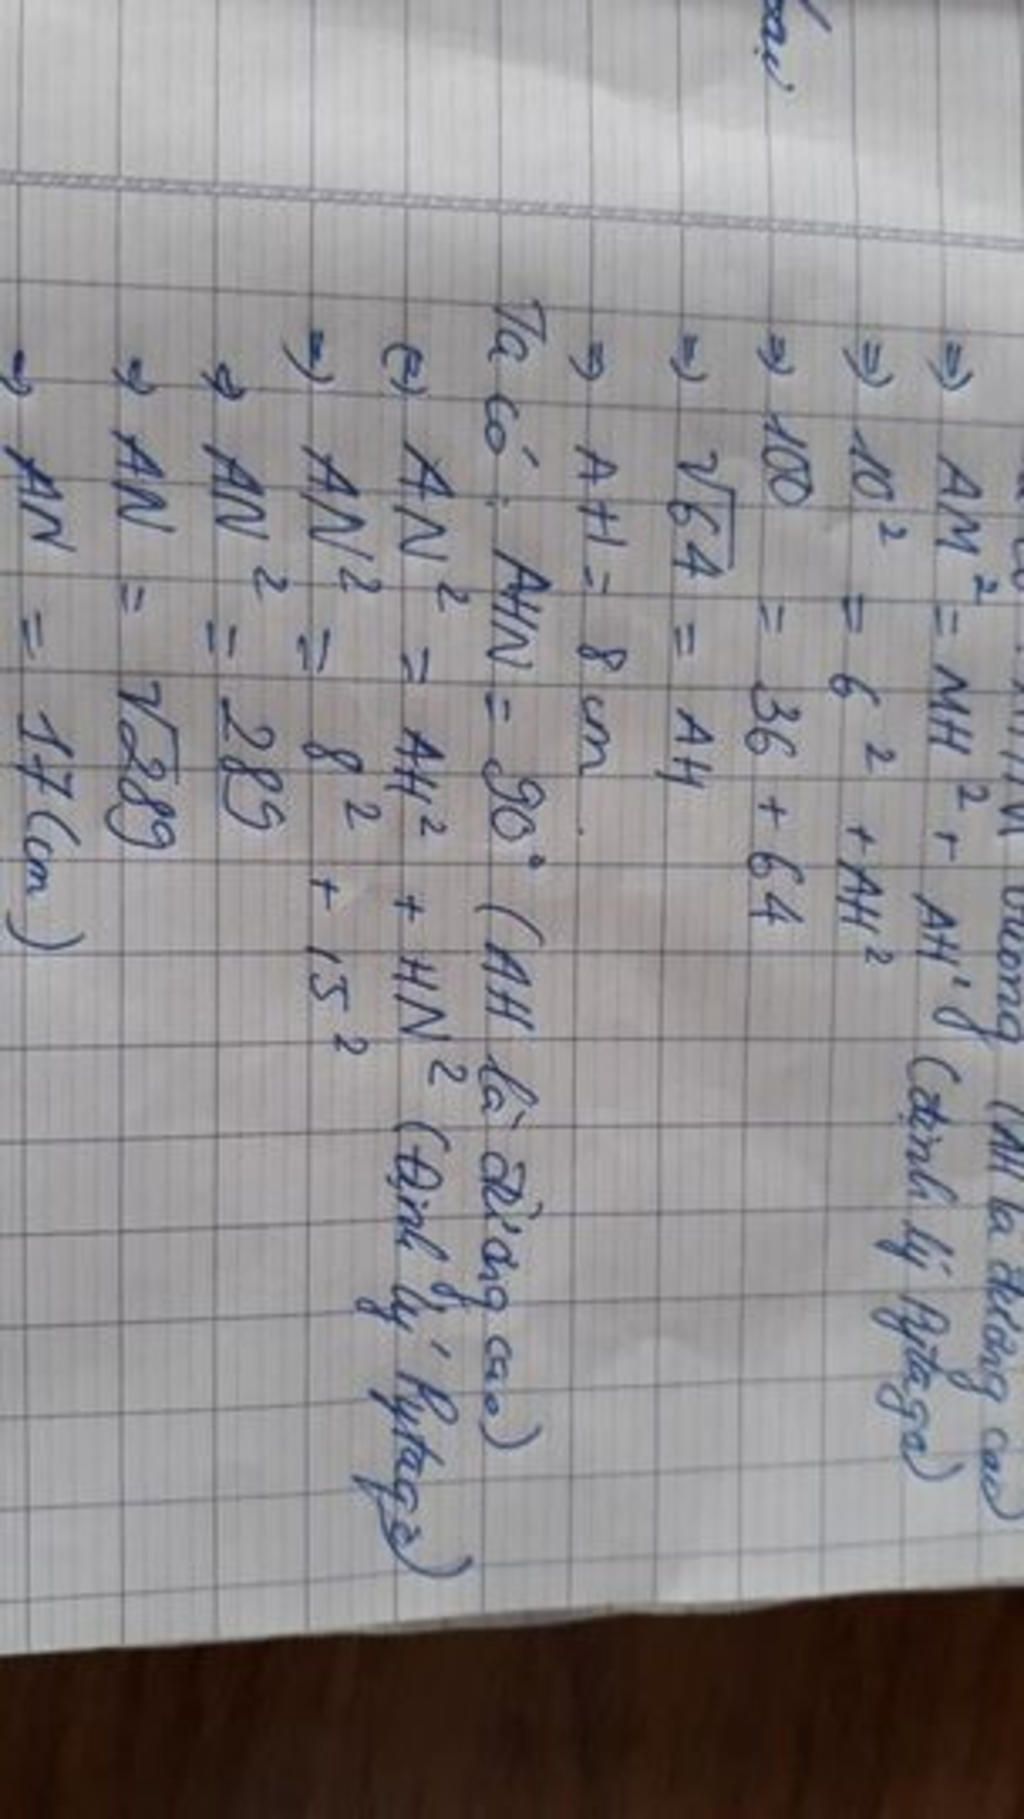 bạn
vuông (AH là đường cao
⇒ AM² = MH² + AH² (định lý Pytago)
⇒ 10² = 6² + AH²
⇒ 100 = 36 + 64
⇒ √64 = AH
⇒ AH = 8 cm.
Ta có : AHN = 90° (AH là đường cao)
⇔ AN² = AH² + HN² (Định lý Pytago)
⇒ AN² = 8² + 15²
⇒ AN² = 289
⇒ AN = √289
⇒ AN = 17 (cm)